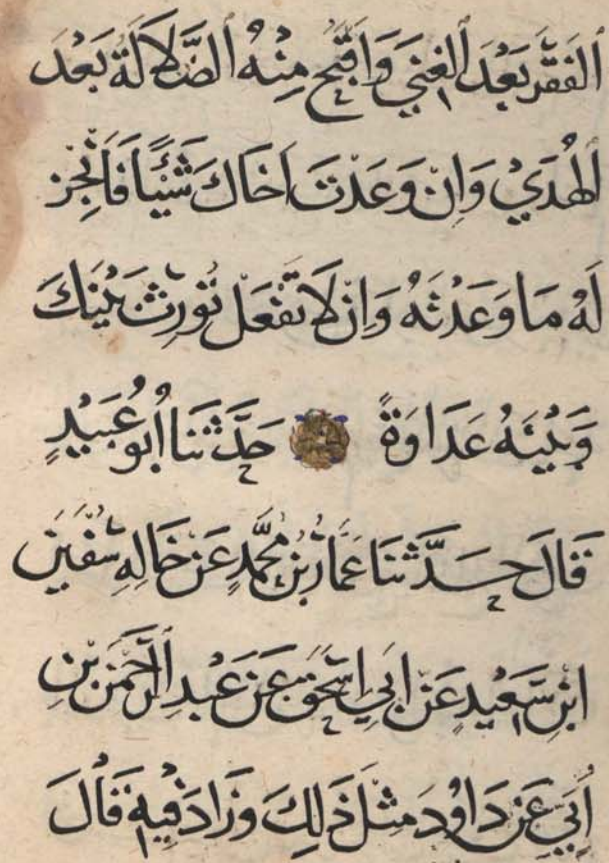 ٱلفَقْرَ بَعْدَ ٱلغِنَي وَاَقْبَحُ مِنْهُ ٱلضَّلَالَةُ بَعْدَ
ٱلهُدَيْ وَاِنْ وَعَدْتَ اَخَاكَ شَيْئًا فَاَنْجِزْ
لَهُ مَا وَعَدْتَهُ وَاِنْ لَا تَفْعَلْ تُورِثْ بَيْنَكَ
وَبَيْنَهُ عَدَاوَةً حَدَّثَنَا اَبُو عُبَيْدٍ
قَالَ حَدَّثَنَا عَمَّارُ بْنُ مُحَمَّدٍ عَنْ خَالِهِ سُفْيٰنَ
ابْنِ سَعِيْدٍ عَنْ اَبِي اِسْحٰقَ عَنْ عَبْدِ ٱلرَّحْمٰنِ بْنِ
اَبْزَي عَنْ دَاوُدَ مِثْلَ ذٰلِكَ وَزَادَ فِيْهِ قَالَ